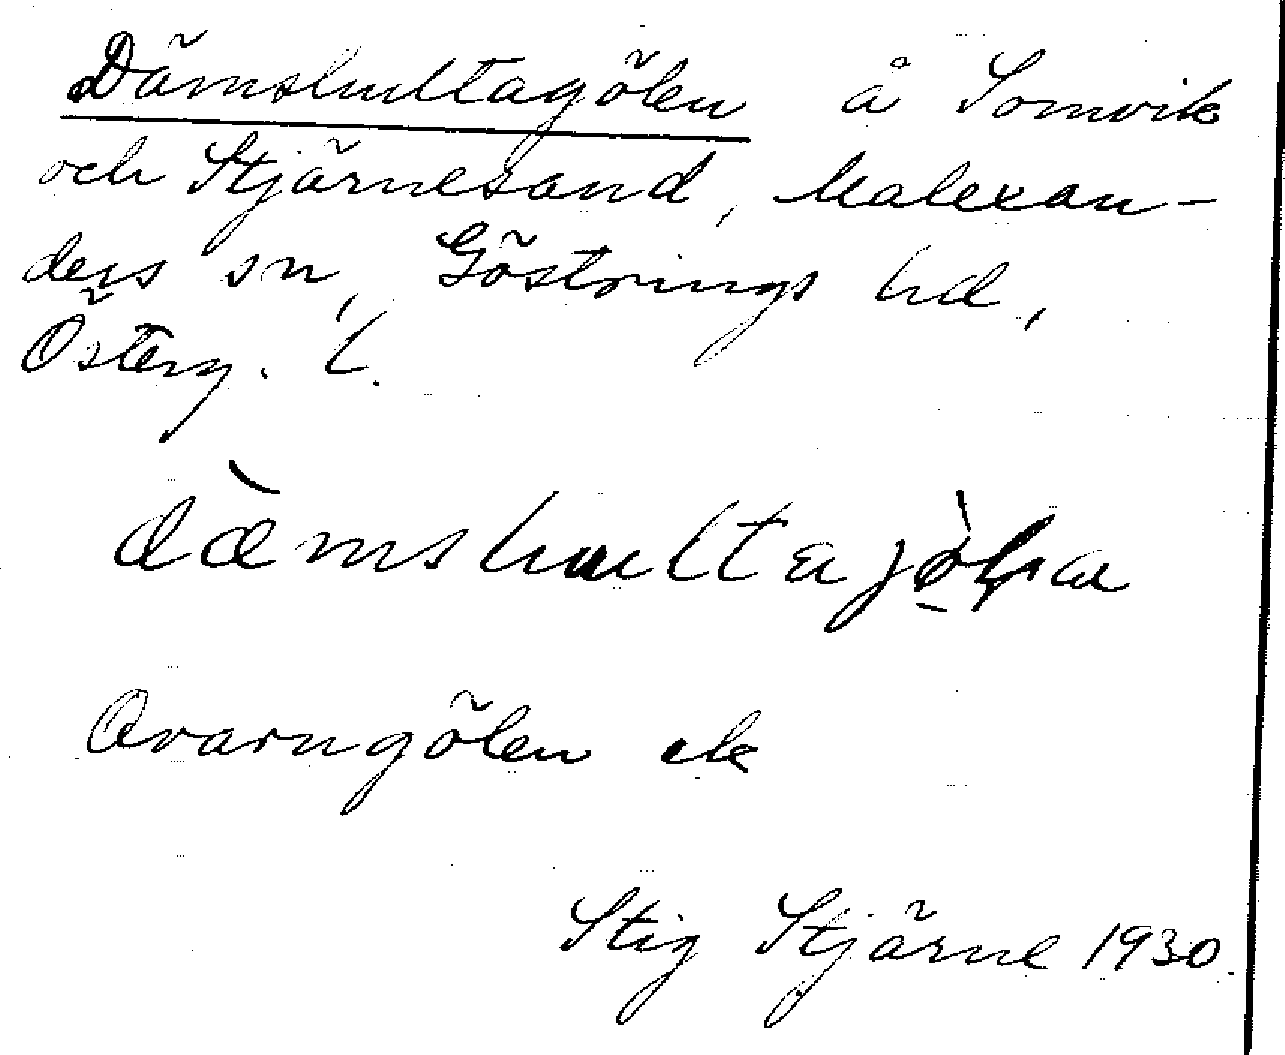 Dämshultagölen å Somvik
och Stjärnesand, Malexan-
ders sn, Göstrings hd,
Österg. l.
dæ̀mshultajö̀lα
Qvarngölen ek
Stig Stjärne 1930.